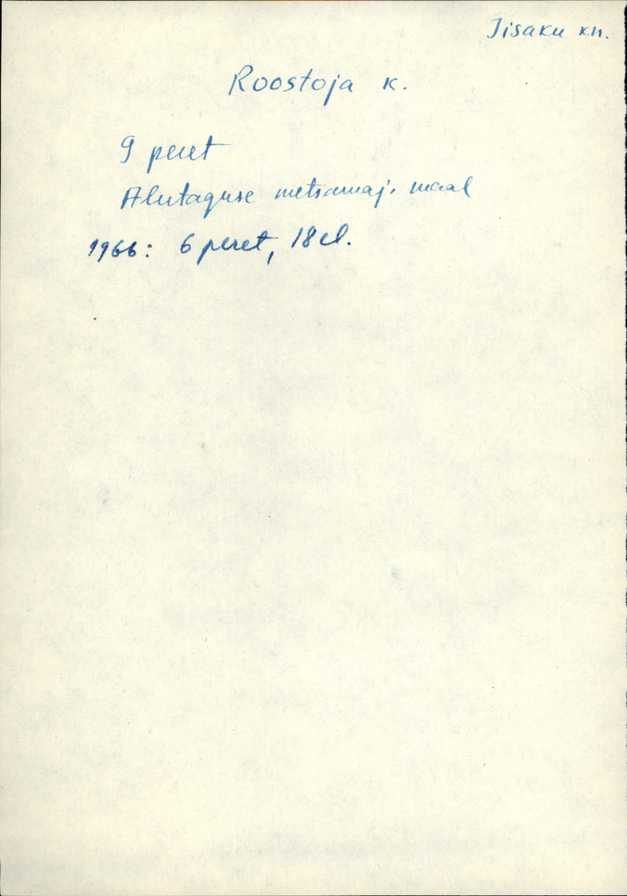 Iisaku kn.
Roostoja k.
9 peret
Alutaguse metsamaj. maal
1966: 6 peret, 18 el.